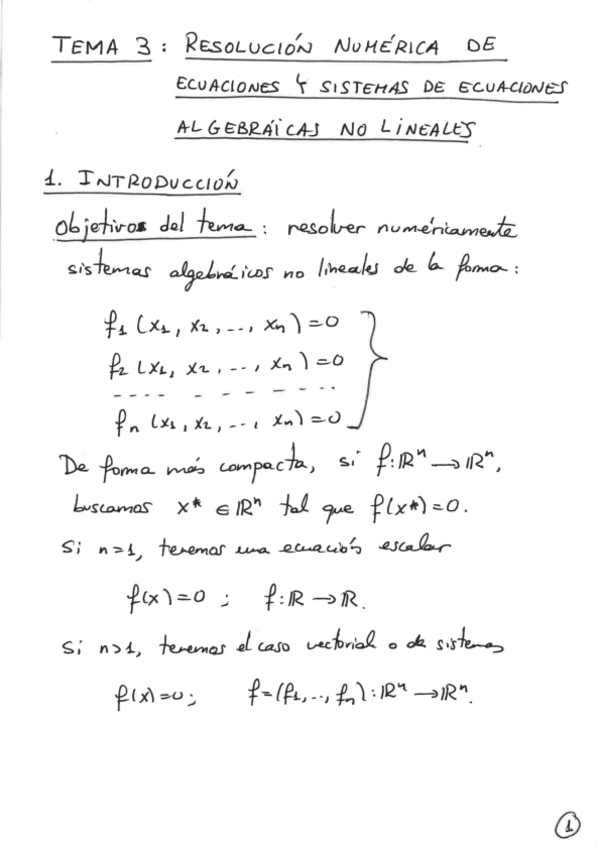 TEMA 3: RESOLUCIÓN NUMÉRICA DE
ECUACIONES Y SISTEMAS DE ECUACIONES
ALGEBRÁICAS NO LINEALES
1. INTRODUCCIÓN
Objetivos del tema: resolver numéricamente
sistemas algebráicos no lineales de la forma:
f₁(x₁, x₂, ..., xₙ)=0
f₂(x₁, x₂, ..., xₙ)=0
---- - - - - - - ...
fₙ(x₁, x₂, ..., xₙ)=0
De forma más compacta, si f:ℝⁿ→ℝⁿ,
buscamos x* ∈ ℝⁿ tal que f(x*)=0.
Si n=1, tenemos una ecuación escalar
f(x)=0 ; f:ℝ→ℝ.
Si n>1, tenemos el caso vectorial o de sistemas
f(x)=0; f=(f₁,..,fₙ):ℝⁿ→ℝⁿ.
1